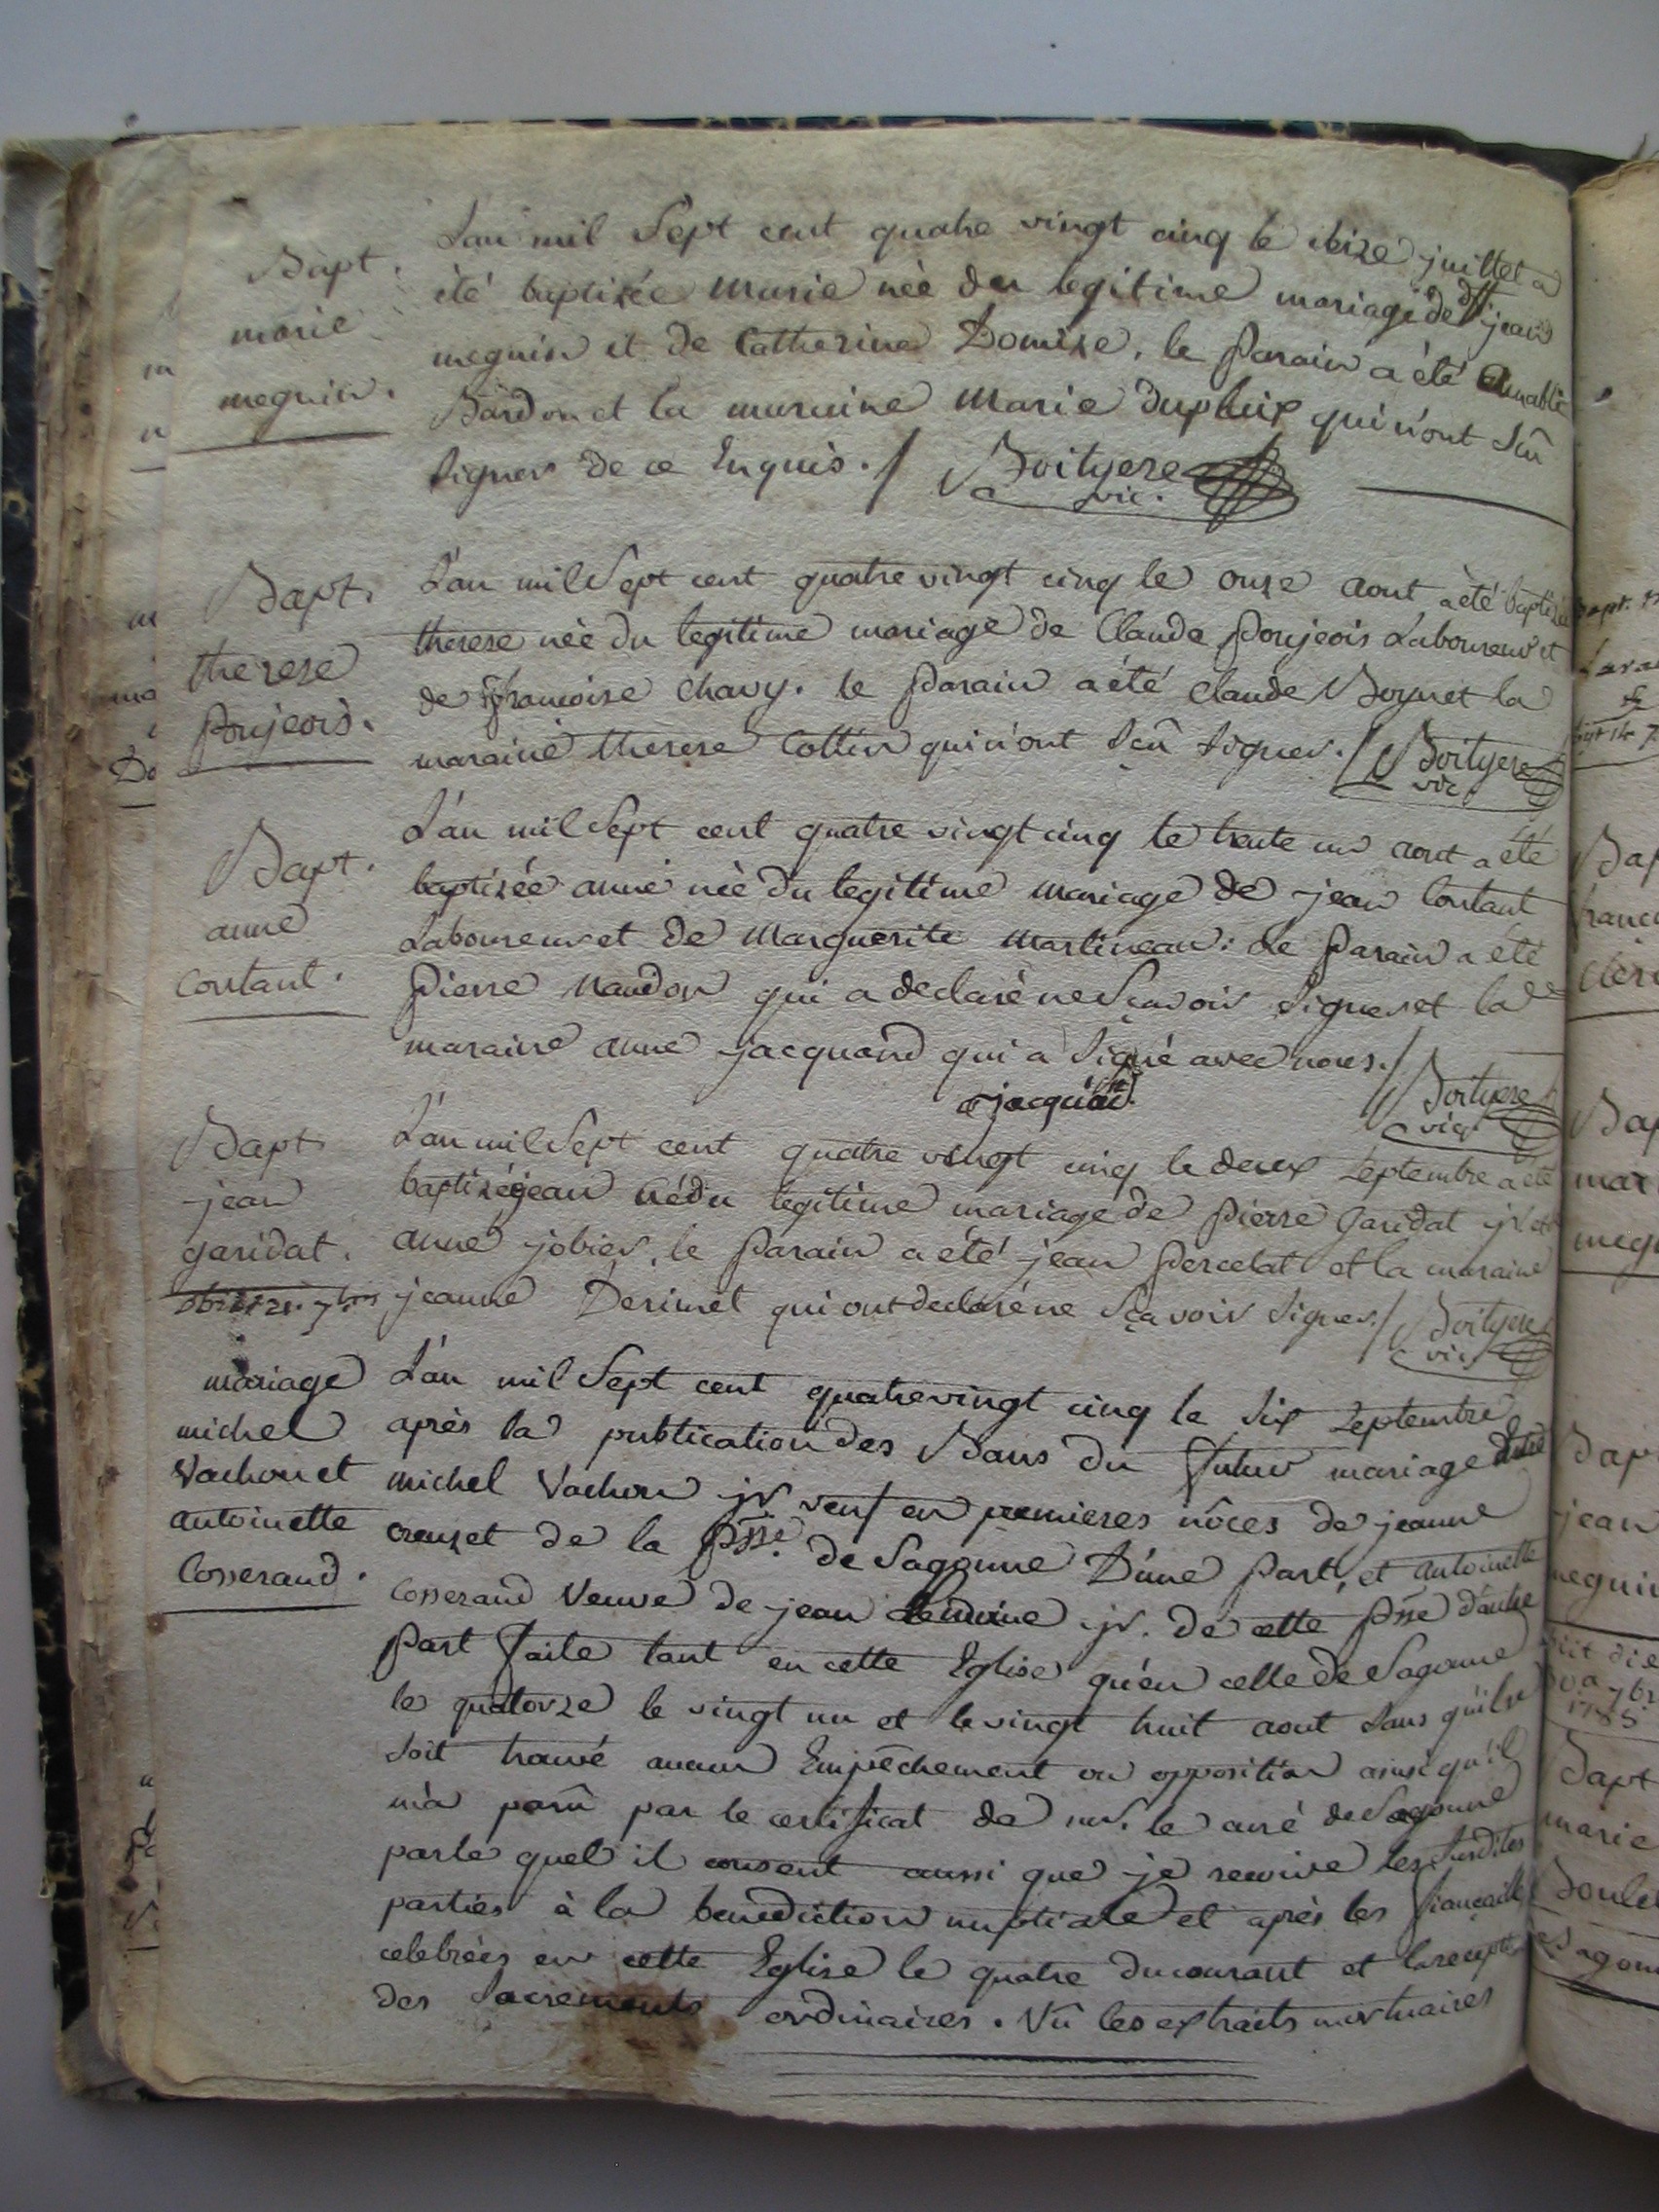 Bapt.
marie
meguin.
L'an mil Sept cent quatre vingt cinq le juillet a
été baptisée marie née du legitime mariage de jean
meguin et de Catherine Domise, le Parain a été amable
Bardon et la maraine marie dupleix qui n'ont Sçû
Signer de ce Enquis. / Boityere
vic.
Bapt.
therese
Poujeois.
L'an mil Sept cent quatre vingt cinq le onze aout a été baptisée
therese née du legitime mariage de Claude Poujeois Laboureur et
de françoise Chavy. le Parain a été Claude et la
maraine therese Cottin qui n'ont Sçû Signer. / Boityere
vic.
Bapt.
anne
Contant.
L'an mil Sept cent quatre vingt cinq le trente un aout a été
baptisée anne née du legitime mariage de jean Contant
Laboureur et de Marguerite Martineau: Le Parain a été
Pierre Naudon qui a declaré ne Sçavoir Signer et la
maraine anne jacquand qui a Signé avec nous. /
jacquand
Boityere
vic.
Bapt.
jean
garidat.
L'an mil Sept cent quatre vingt cinq le deux Septembre a été
baptisé jean né du legitime mariage de Pierre Garidat jr. et
anne jobier, le Parain a été jean Percelat et la maraine
jeanne Derimet qui ont declaré ne Sçavoir Signer. / Boityere
vic.
mariage
michel
Vachon et
antoinette
Cosserand.
L'an mil Sept cent quatre vingt cinq le Six Septembre
après la publication des Bans du futur mariage Entre
michel Vachon jr. veuf en premieres nôces de jeanne
creuzet de la Psse. de Sagonne D'une Part, et antoinette
Cosserand Veuve de jean jr. de cette Psse d'autre
Part faite tant en cette Eglise qu'en celle de Sagonne
le quatorze le vingt un et le vingt huit aout Sans qu'il se
Soit trouvé aucun Empêchement ou opposition ainsi qu'il
m'a parû par le certificat de mr. le curé de Sagonne
par le quel il consent aussi que je recoive les Susdites
parties à la benediction nuptiale et après les fiançailles
celebrées en cette Eglise le quatre du courant et la reception
des Sacrements ordinaires. Vû les extraits mortuaires